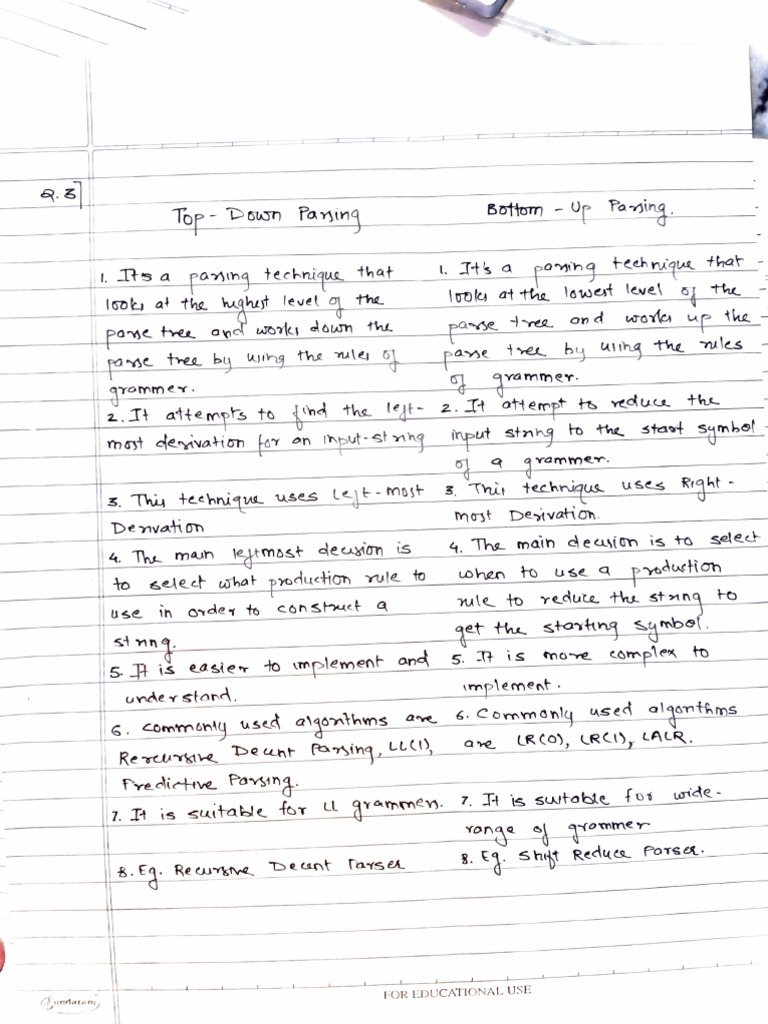 Q.3]
Top-Down Parsing
Bottom-Up Parsing.
1. It's a parsing technique that
looks at the highest level of the
parse tree and works down the
parse tree by using the rules of
grammer.
2. It attempts to find the left-
most derivation for an input-string
3. This technique uses left-most
Derivation
4. The main leftmost decision is
to select what production rule to
use in order to construct a
string.
5. It is easier to implement and
understand.
6. commonly used algorithms are
Rercursive Decent Parsing, LL(1),
Predictive Parsing.
7. It is suitable for LL grammer.
8. Eg. Recursive Decent Parser
1. It's a parsing technique that
looks at the lowest level of the
parse tree and works up the
parse tree by using the rules
of grammer.
2. It attempt to reduce the
input string to the start symbol
of a grammer.
3. This technique uses Right-
most Derivation.
4. The main decision is to select
when to use a production
rule to reduce the string to
get the starting symbol.
5. It is more complex to
implement.
6. Commonly used algorithms
are LR(0), LR(1), LALR.
7. It is suitable for wide-
range of grammer
8. Eg. Shift Reduce Parser.
Sundaram
FOR EDUCATIONAL USE